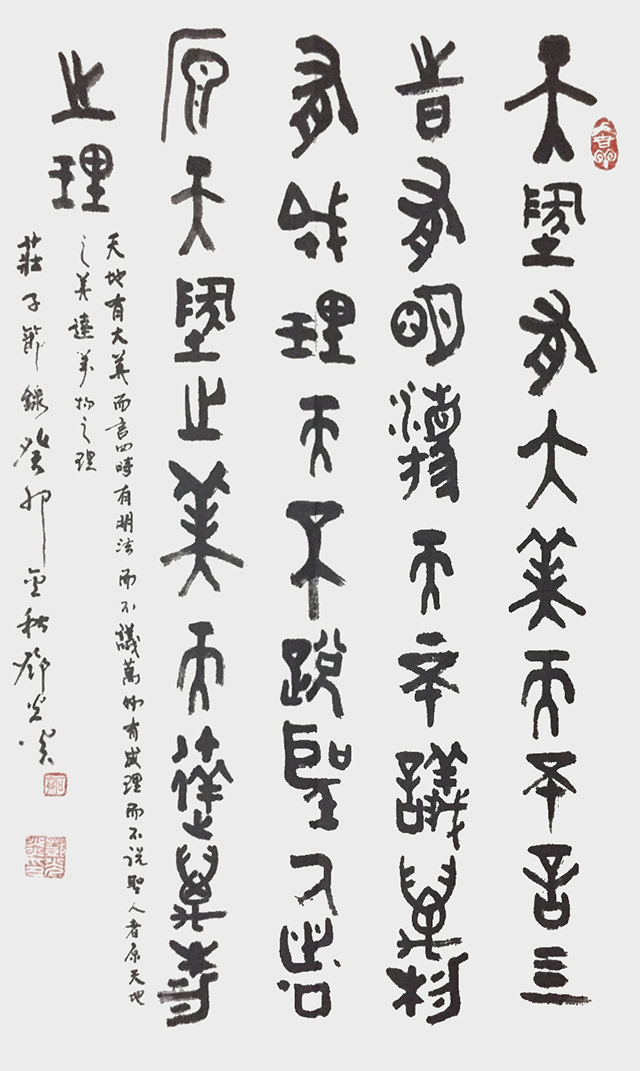 天地有大美而不言四
時有明灋而不議萬物
有成理而不說聖人者
原天地之美而達萬物
之理
天地有大美而言四時有明法而不議萬物有成理而不说聖人者原天地
之美達萬物之理
莊子節錄癸卯金秋鄧光